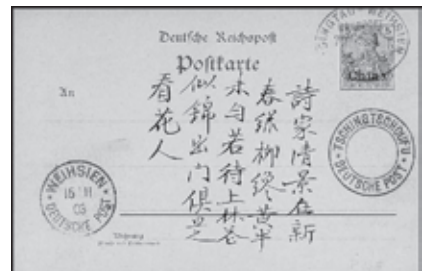 Deutsche Reichspost
Postkarte
An
TSINGTAU-WEIHSIEN
China
詩家清景在新
春綠柳纔黃半
未勻若待上林花
似錦出門俱是
看花人
TSCHINGTSCHOUFU
DEUTSCHE POST
WEIHSIEN
15 11
03
DEUTSCHE POST